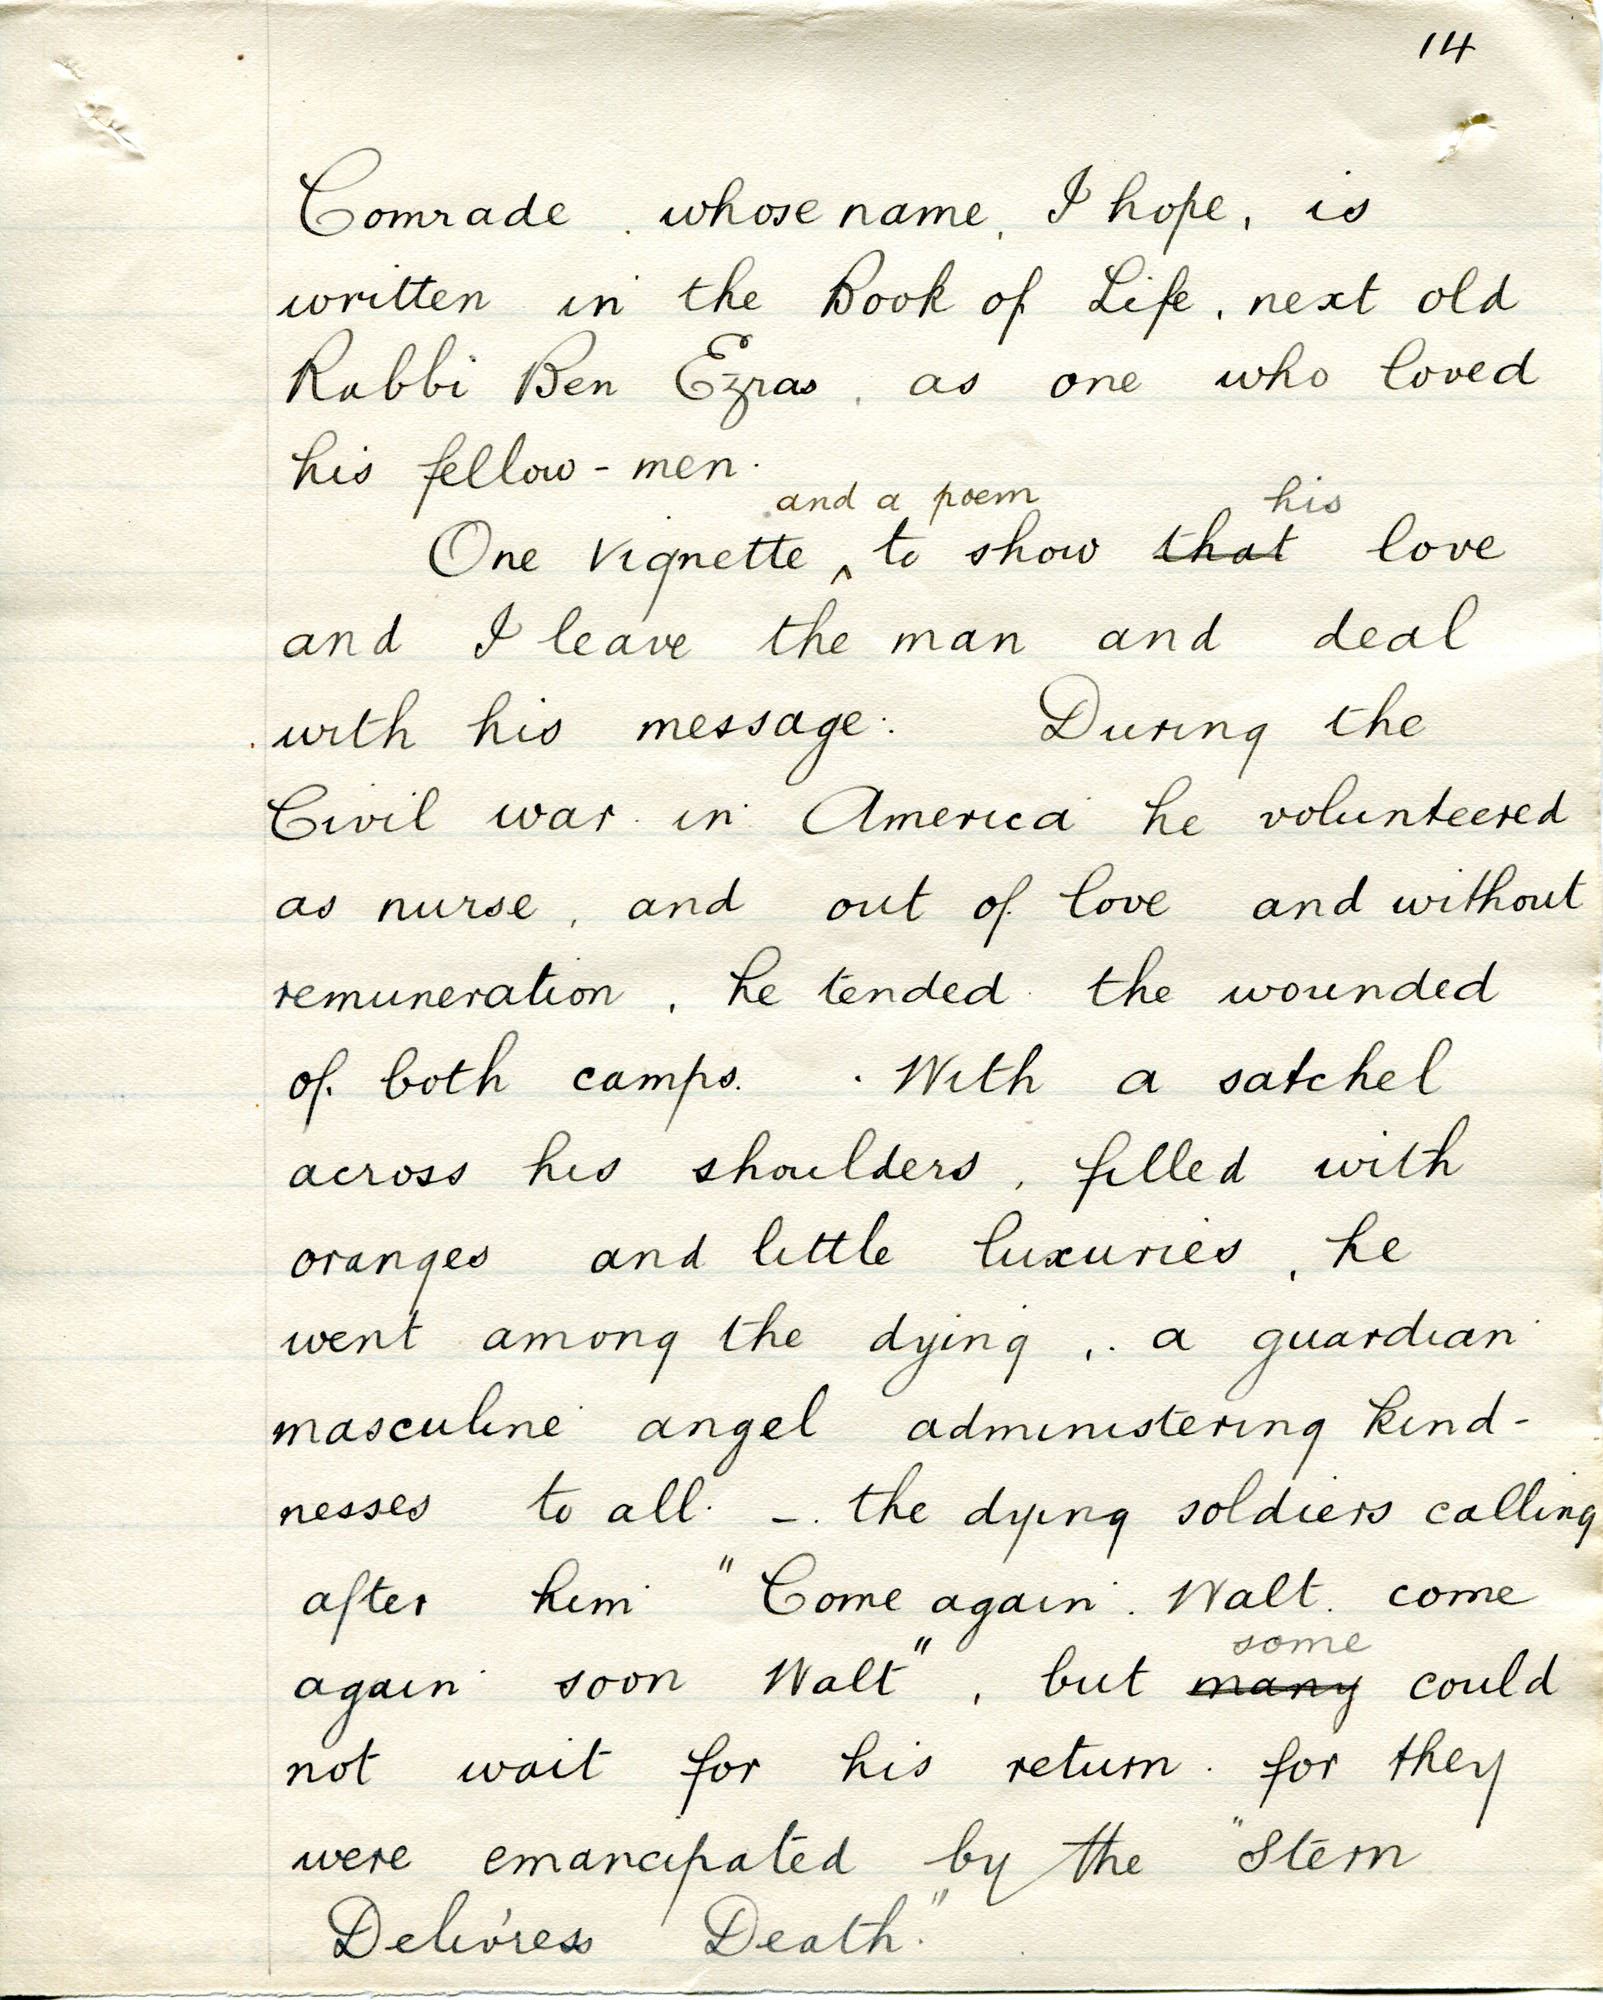 14
Comrade, whose name, I hope, is
written in the Book of Life, next old
Rabbi Ben Ezras, as one who loved
his fellow-men.
and a poem his
One vignette ^ to show that love
and I leave the man and deal
with his message. During the
Civil war in America he volunteered
as nurse, and out of love and without
remuneration, he tended the wounded
of both camps. With a satchel
across his shoulders, filled with
oranges and little luxuries, he
went among the dying, a guardian
masculine angel administering kind-
nesses to all. - the dying soldiers calling
after him "Come again. Walt. come
some
again soon Walt", but many could
not wait for his return. for they
were emancipated by the "Stern
Deliv'ress Death."